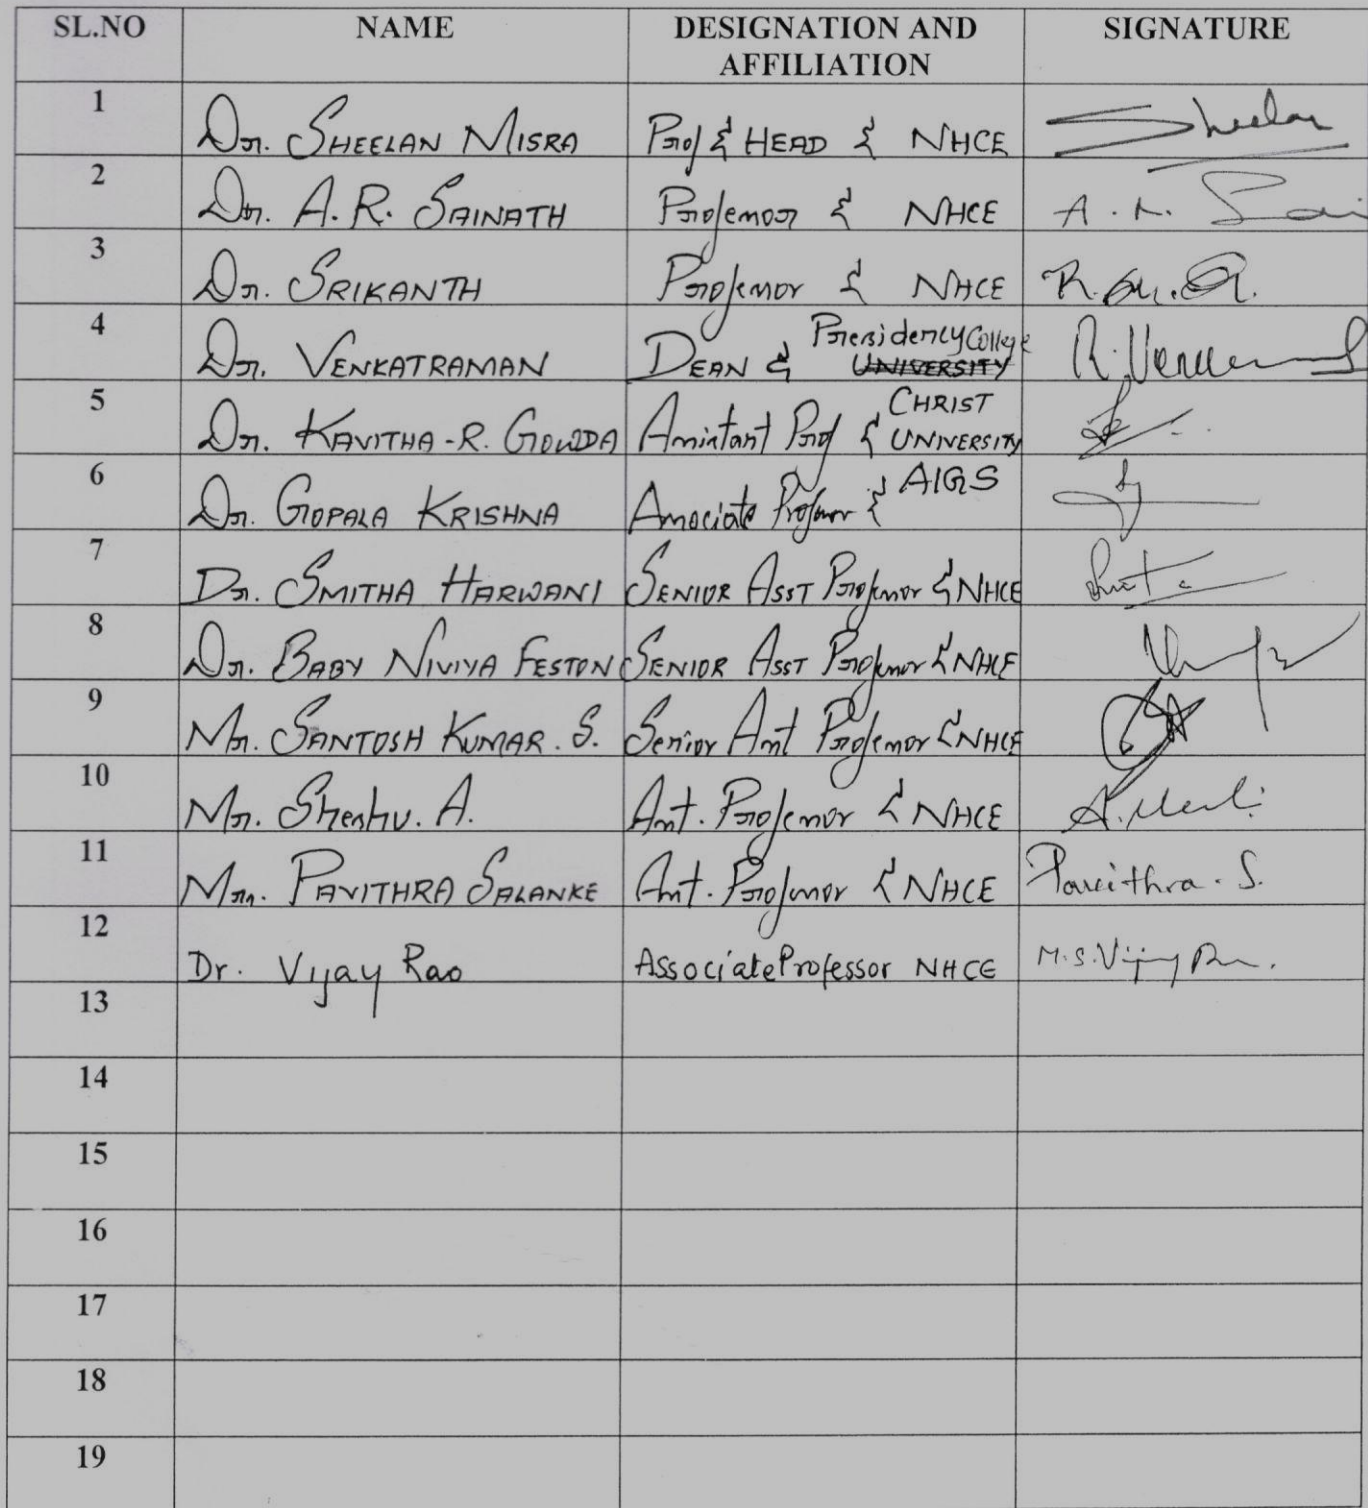 SL.NO NAME DESIGNATION AND AFFILIATION SIGNATURE
1 Dr. SHEELAN MISRA Prof & HEAD & NHCE Sheelan
2 Dr. A.R. SAINATH Professor & NHCE A.R. Sai
3 Dr. SRIKANTH Professor & NHCE
4 Dr. VENKATRAMAN DEAN & Presidency College UNIVERSITY
5 Dr. KAVITHA-R. GOWDA Assistant Prof & CHRIST UNIVERSITY
6 Dr. GOPALA KRISHNA Associate Professor & AIGS
7 Dr. SMITHA HARWANI SENIOR ASST Professor & NHCE
8 Dr. BABY NIVIYA FESTON SENIOR ASST Professor & NHCE
9 Mr. SANTOSH KUMAR. S. Senior Asst Professor & NHCE
10 Mr. Sheshu. A. Asst. Professor & NHCE
11 Mrs. PAVITHRA SALANKE Asst. Professor & NHCE Pavithra. S.
12 Dr. Vijay Rao Associate Professor NHCE M.S. Vijay
13
14
15
16
17
18
19